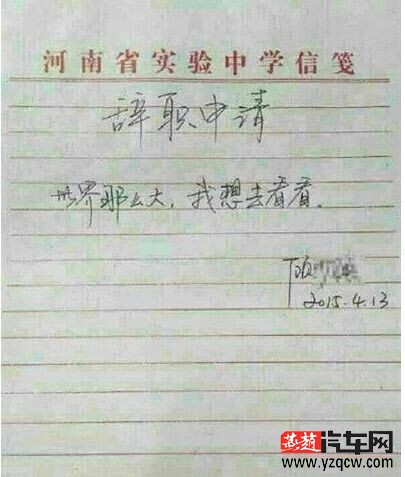 河南省实验中学信笺
辞职申请
世界那么大，我想去看看。
顾
2015.4.13
燕赵汽车网
www.yzqcw.com